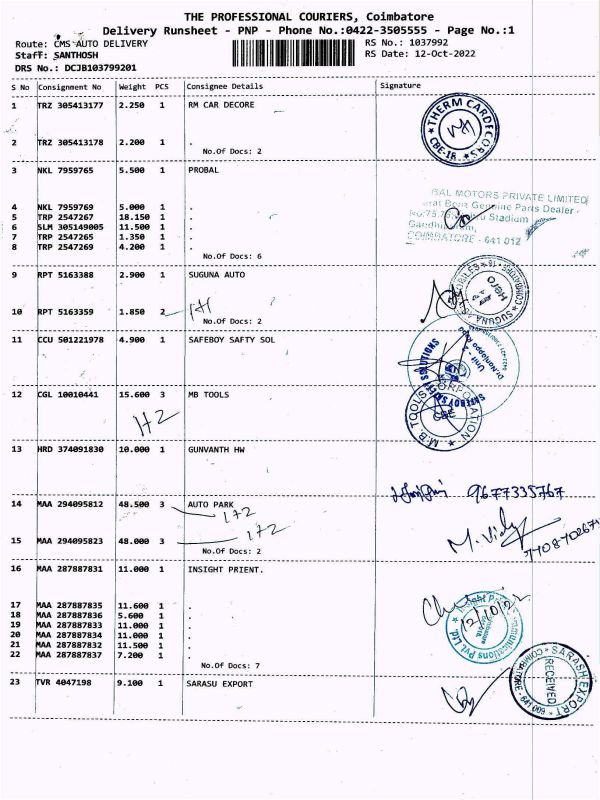 THE PROFESSIONAL COURIERS, Coimbatore
Delivery Runsheet - PNP - Phone No.:0422-3505555 - Page No.:1
Route: CMS AUTO DELIVERY
RS No.: 1037992
Staff: SANTHOSH
RS Date: 12-Oct-2022
DRS No.: DCJB103799201
S No Consignment No Weight PCS Consignee Details Signature
1 TRZ 305413177 2.250 1 RM CAR DECORE
THERM CARDECORS
CBE-18
2 TRZ 305413178 2.200 1 .
No.Of Docs: 2
3 NKL 7959765 5.500 1 PROBAL
BAL MOTORS PRIVATE LIMITED
Genuine Parts Dealer -
Stadium
COIMBATORE - 641 012
4 NKL 7959769 5.000 1 .
5 TRP 2547267 18.150 1 .
6 SLM 305149005 11.500 1 .
7 TRP 2547265 1.350 1 .
8 TRP 2547269 4.200 1 .
No.Of Docs: 6
9 RPT 5163388 2.900 1 SUGUNA AUTO
Hero
10 RPT 5163359 1.850 2 .
1+1
No.Of Docs: 2
11 CCU 501221978 4.900 1 SAFEBOY SAFTY SOL
Unit - 2
12 CGL 10010441 15.600 3 MB TOOLS
1+2
M.B. TOOLS CORPORATION
CBE
13 HRD 374091830 10.000 1 GUNVANTH HW
9677335767
14 MAA 294095812 48.500 3 AUTO PARK
1+2
15 MAA 294095823 48.000 3 .
1+2
No.Of Docs: 2
16 MAA 287887831 11.000 1 INSIGHT PRIENT.
12/10/22
17 MAA 287887835 11.600 1 .
18 MAA 287887836 5.600 1 .
19 MAA 287887833 11.000 1 .
20 MAA 287887834 11.000 1 .
21 MAA 287887832 11.500 1 .
22 MAA 287887837 7.200 1 .
No.Of Docs: 7
23 TVR 4047198 9.100 1 SARASU EXPORT
SARASH EXPORT
RECEIVED
COIMBATORE - 641 009